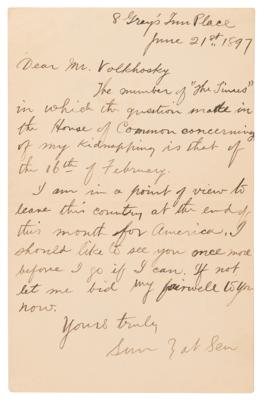 8 Gray's Inn Place
June 21st 1897
Dear Mr. Volkhosky
The number of "The Times"
in which the question made in
the House of Common concerning
of my Kidnapping is that of
the 16th of February.
I am in a point of view to
leave this country at the end of
this month for America. I
should like to see you once more
before I go if I can. If not
let me bid my fairwell to you
now.
Yours truly
Sun Yat Sen